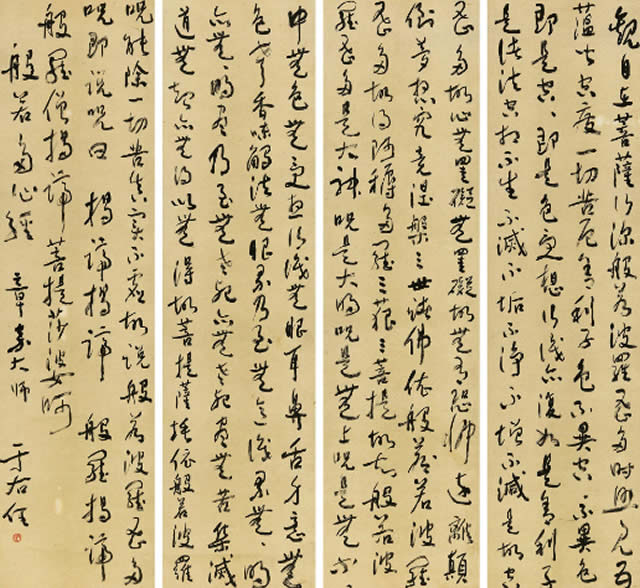 觀自在菩薩行深般若波羅蜜多時照見五
蘊皆空度一切苦厄舍利子色不異空、不異色
即是空、即是色受想行識亦復如是舍利子
是諸法空相不生不滅不垢不淨不增不減是故空
中無色無受想行識無眼耳鼻舌身意無
色聲香味觸法無眼界乃至無意識界無、明
亦無、明盡乃至無老死亦無老死盡無苦集滅
道無智亦無得以無得故菩提薩埵依般若波羅
蜜多故心無罣礙無罣礙故無有恐怖遠離顛
倒夢想究竟涅槃三世諸佛依般若波羅
蜜多故得阿耨多羅三藐三菩提故知般若波
羅蜜多是大神咒是大明咒是無上咒是無等
咒能除一切苦真實不虛故說般若波羅蜜多
咒即說咒曰 揭諦揭諦 般羅揭諦
般羅僧揭諦 菩提莎婆呵
般若多心經 章嘉大師 于右任